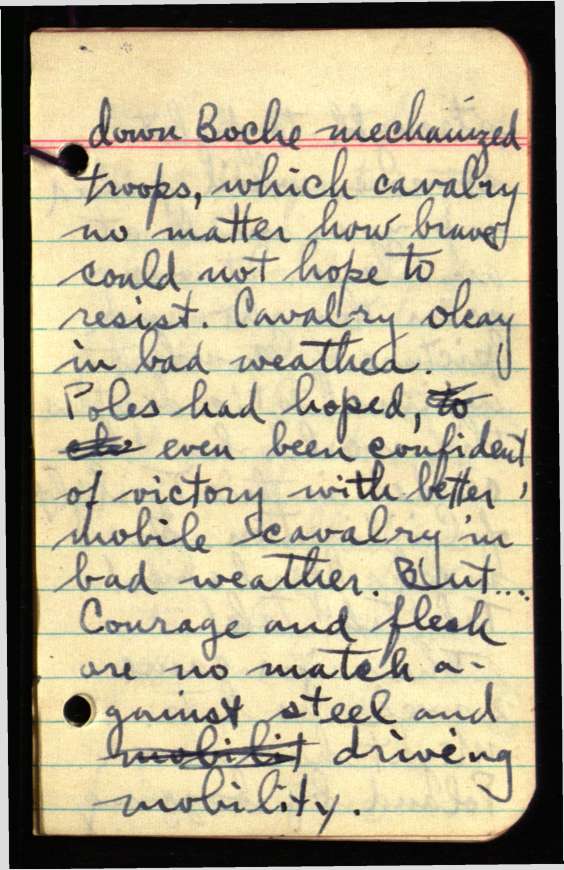 down Boche mechanized
troops, which cavalry
no matter how brave
could not hope to
resist. Cavalry okay
in bad weather.
Poles had hoped, to
even been confident
of victory with better,
mobile cavalry in
bad weather. But....
Courage and flesh
are no match a-
gainst steel and
mobilit driving
mobility.